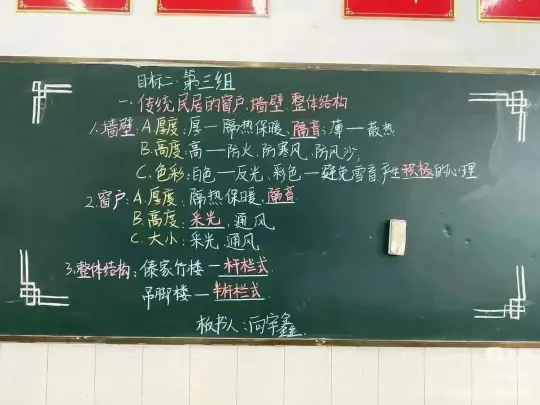 目标二.第三组
一、传统民居的窗户、墙壁、整体结构
1.墙壁:A.厚度:厚—隔热保暖、隔音;薄—散热
B.高度:高—防火、防寒风、防风沙;
C.色彩:白色—反光,彩色—避免雪盲,产生积极的心理
2.窗户:A.厚度、隔热保暖、隔音.
B.高度:采光、通风
C.大小:采光、通风
3.整体结构:傣家竹楼—杆栏式
吊脚楼—半杆栏式
板书人:向宇鑫